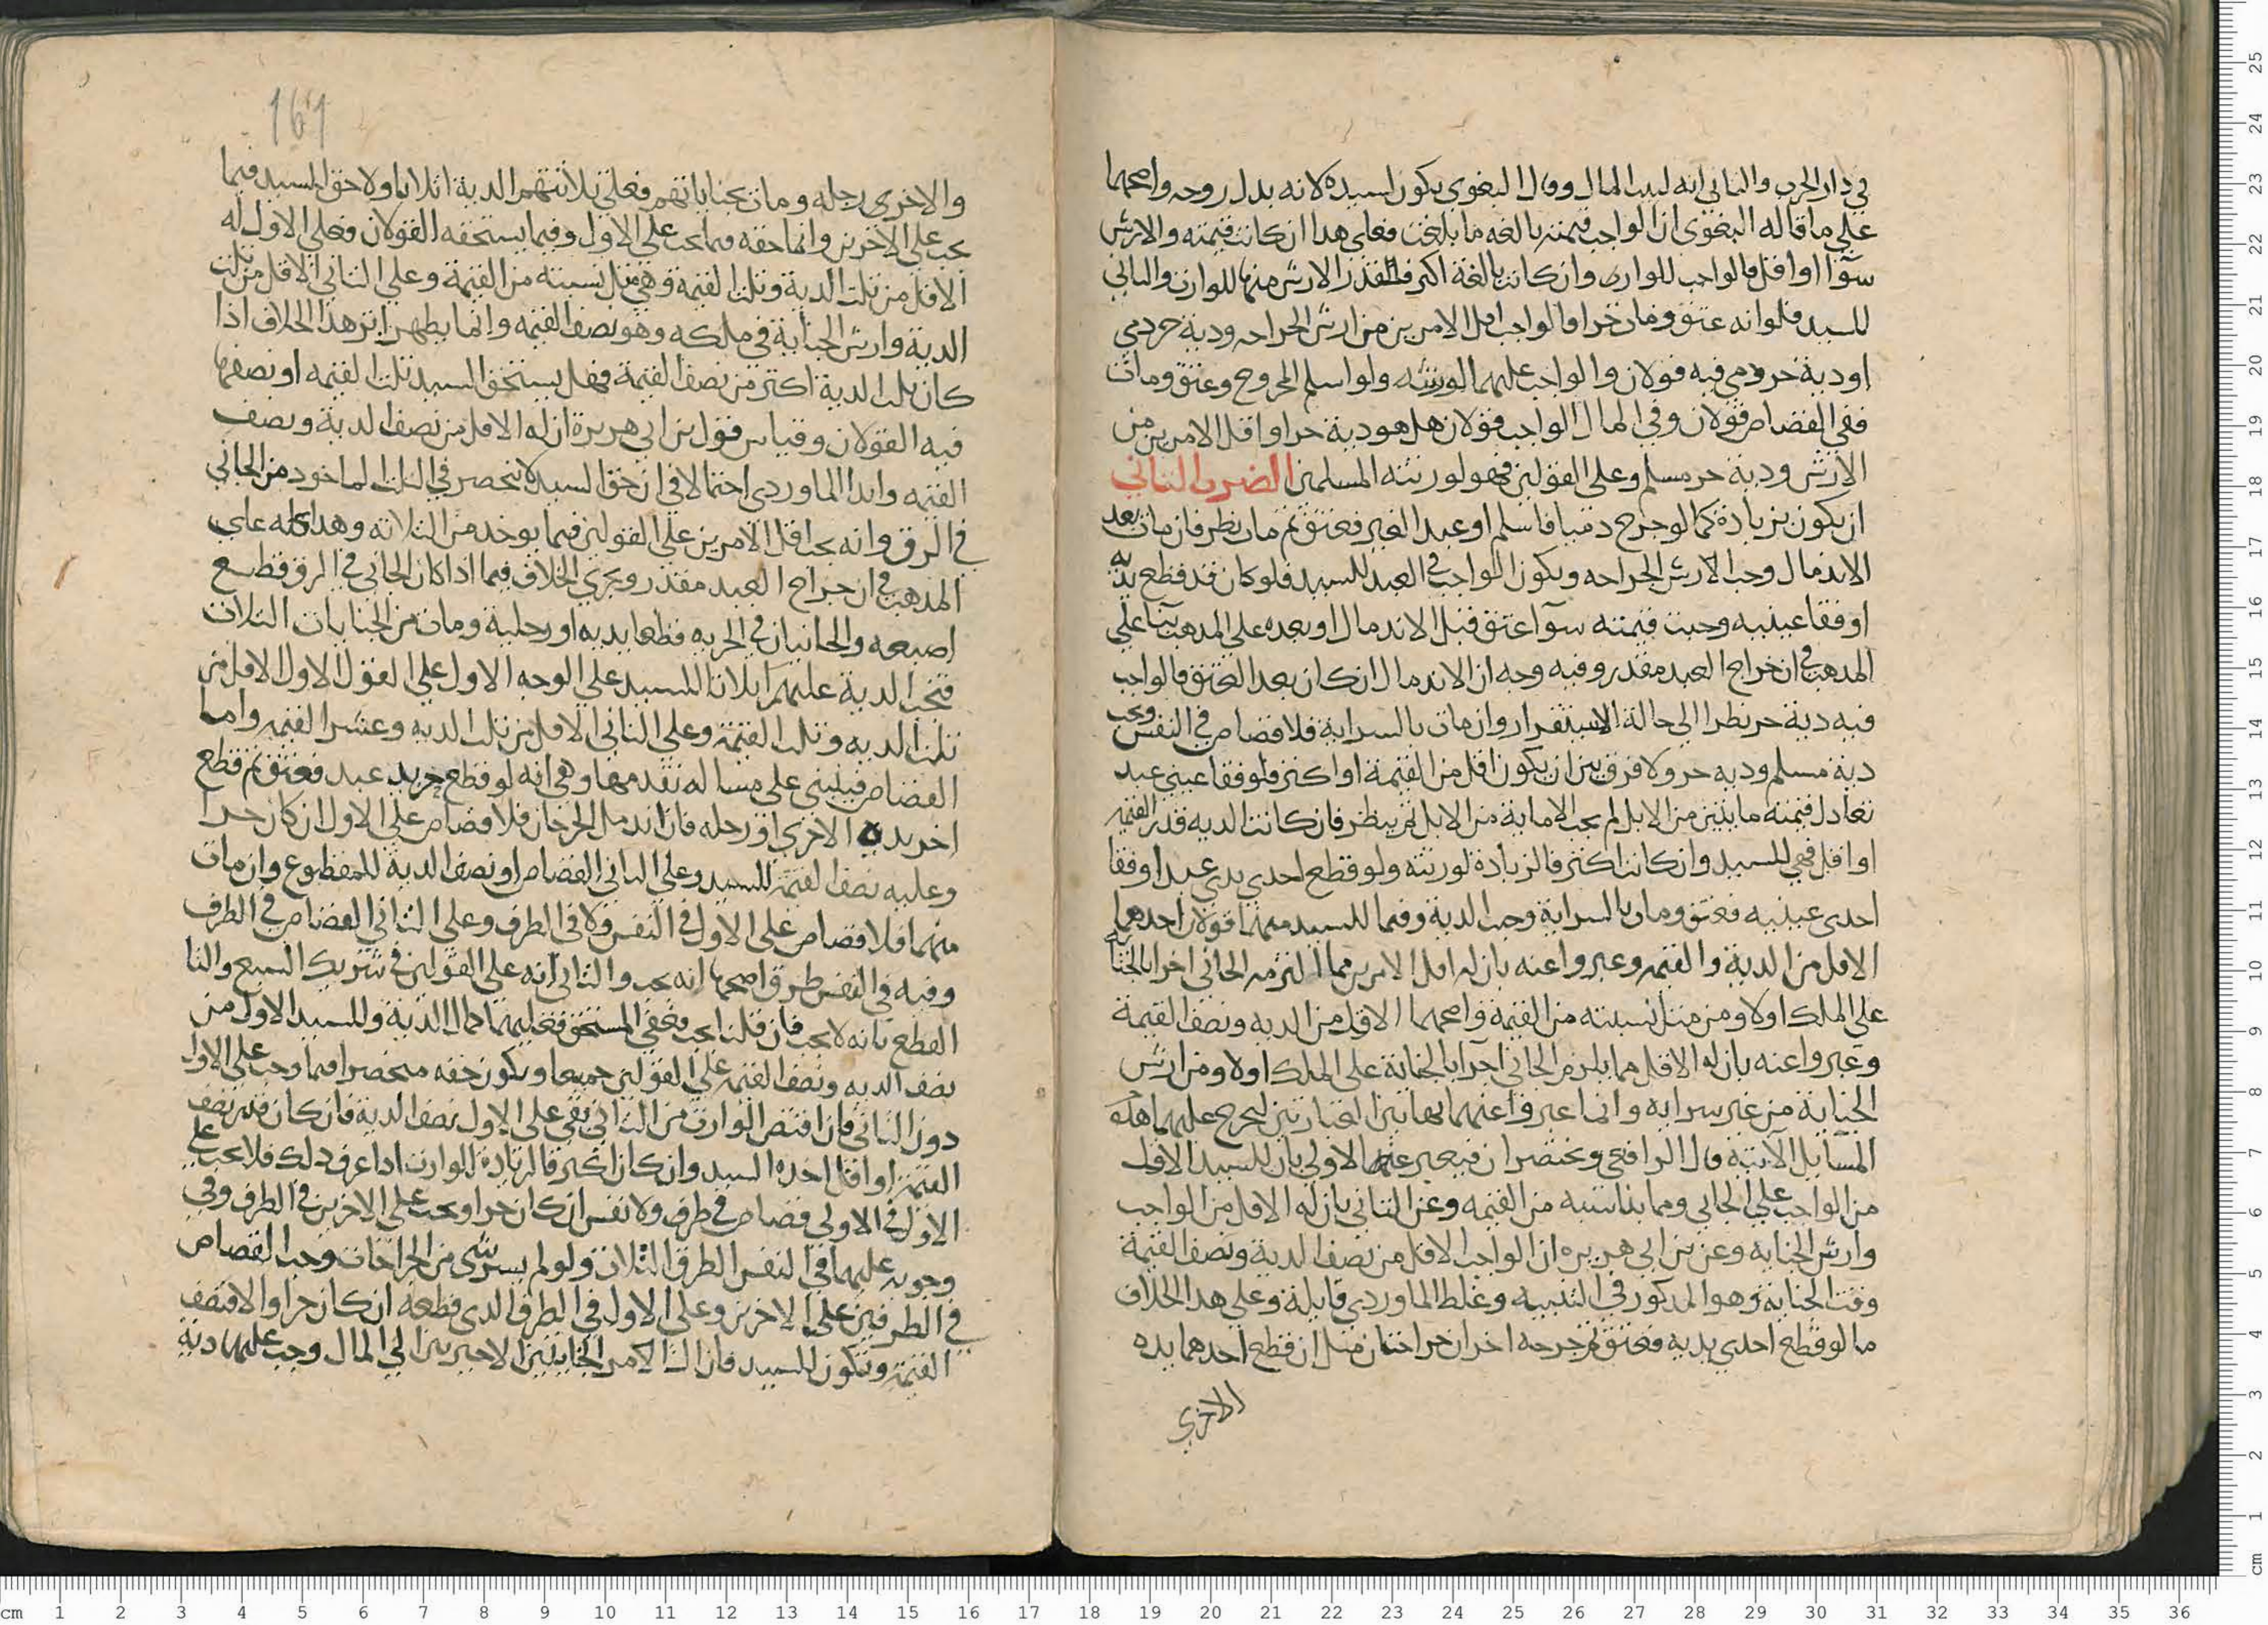 في دار الحرب والثاني انه لبيت المال وقال البغوي يكون لسيده لانه بدل روحه واصحهما
علي ما قاله البغوي ان الواجب قيمته بالغه ما بلغت فعلي هذا ان كانت قيمته والارش
سوآ او اقل فالواجب للوارث وان كانت بالغة اكثر فالقدر الارش منها للوارث والباقي
للسيد فلو انه عتق ومات حرا فالواجب اقل الامرين من ارش الجراحه ودية حر ذمي
او دية حر ذمي فيه قولان والواجب عليهما لورثته ولو اسلم المجروح وعتق ومات
ففي القصاص قولان وفي المال الواجب قولان هل هو دية حر او اقل الامرين من
الارش ودية حر مسلم وعلي القولين فهو لورثته المسلمين الضرب الثاني
ان يكون بزيادة كما لو جرح ذميا فاسلم او عبدا لغير فعتق ثم مات نظر فان مات بعد
الاندمال وجب الارش الجراحه ويكون الواجب في العبد للسيد فلو كان قد قطع يديه
او فقا عينيه وجبت قيمته سوآ عتق قبل الاندمال او بعده علي المذهب بنا علي
المذهب في ان جراح العبد مقدر وفيه وجه ان الاندمال ان كان بعد العتق فالواجب
فيه دية حر نظرا الي حالة الاستقرار وان مات بالسراية فلا قصاص في النفس وتجب
دية مسلم ودية حر ولا فرق بين ان يكون اقل من القيمة او اكثر فلو فقا عيني عبد
تعادل قيمته مايتين من الابل لم يجب الا ماية من الابل ثم ينظر فان كانت الديه قدر القيمه
او اقل فهي للسيد وان كانت اكثر فالزيادة لورثته ولو قطع احدي يدي عبد او فقا
احدي عينيه فعتق ومات بالسراية وجبت الدية وفيما للسيد منهما قولان احدهما
الاقل من الدية والقيمه وعبروا عنه بان له اقل الامرين مما التزمه الجاني اخرا بالجناية
علي الملك اولا ومن مثل نسبته من القيمة واصحهما الاقل من الديه ونصف القيمة
وعبروا عنه بان له الاقل مما يلزم الجاني اخرا بالجناية علي الملك اولا ومن ارش
الجناية من غير سرايه وانما عبروا عنهما بهاتين العبارتين لتخرج عليهما هذه
المسآيل الاتية قال الرافعي ويختصران فيعبر عن الاولي بان للسيد الاقل
من الواجب علي الجاني ومما يناسبه من القيمه وعن الثاني بان له الاقل من الواجب
وارش الجنايه وعن بن ابي هريره ان الواجب الاقل من نصف الدية ونصف القيمة
وقت الجناية وهو المذكور في التنبيه وغلط الماوردي قايله وعلي هذا الخلاف
ما لو قطع احدي يديه فعتق ثم جرحه اخران جراحتان مثل ان قطع احدهما يده
الاخري
161
والاخري رجله ومات بجناياتهم فعلي ثلاثتهم الدية اثلاثا ولا حق للسيد فيما
يجب علي الاخرين وانما حقه فيما يجب علي الاول وفيما يستحقه القولان فعلي الاول له
الاقل من ثلث الدية وثلث القيمة وهي مثل نسبته من القيمة وعلي الثاني الاقل من ثلث
الدية وارش الجناية في ملكه وهو نصف القيمه وانما يظهر اثر هذا الخلاف اذا
كان ثلث الدية اكثر من نصف القيمة فهل يستحق السيد ثلث القيمه او نصفها
فيه القولان وقياس قول بن ابي هريرة ان له الاقل من نصف الدية ونصف
القيمه وابدا الماوردي احتمالا في ان حق السيد لا ينحصر في الثلث الماخوذ من الجاني
في الرق وانه يجب اقل الامرين علي القولين فيما يوخذ من الثلاثه وهذا كله علي
المذهب في ان جراح العبد مقدر ويجري الخلاف فيما اذا كان الجاني في الرق قطع
اصبعه والجانيان في الحريه قطعا يديه او رجليه ومات من الجنايات الثلاث
فتجب الدية عليهم اثلاثا للسيد علي الوجه الاول علي القول الاول الاقل من
ثلث الديه وثلث القيمة وعلي الثاني الاقل من ثلث الديه وعشر القيمه واما
القصاص فيبتني علي مساله نقدمها وهي انه لو قطع حر يد عبد فعتق ثم قطع
اخر يده الاخري او رجله فان اندمل الجرحان فلا قصاص علي الاول ان كان حرا
وعليه نصف القيمة للسيد وعلي الثاني القصاص او نصف الدية للمقطوع وان مات
منهما فلا قصاص علي الاول في النفس ولا في الطرف وعلي الثاني القصاص في الطرف
وفيه في النفس طرق اصحها انه يجب والثاني انه علي القولين في شريك السبع والثا
القطع بانه لا يجب فان قلنا يجب فعفي المستحق فعليهما كمال الدية وللسيد الاول من
نصف الديه ونصف القيمة علي القولين جميعا ويكون حقه منحصرا فيما وجب علي الاول
دون الثاني فان اقتص الوارث من الثاني بقي علي الاول نصف الدية فان كان قدر نصف
القيمة او اقل اخذه السيد وان كان اكثر فالزيادة للوارث اذا عرف ذلك فلا يجب علي
الاول في الاولي قصاص في طرف ولا نفس ان كان حرا ويجب علي الاخرين في الطرف وفي
وجوبه عليهما في النفس الطرق الثلاث ولو لم يسر شي من الجراحات وجب القصاص
في الطرفين علي الاخرين وعلي الاول في الطرف الذي قطعه ان كان حرا والا فنصف
القيمة وتكون للسيد فان آل الامر الجنايتين الاخيرتين الي المال وجب عليهما دية